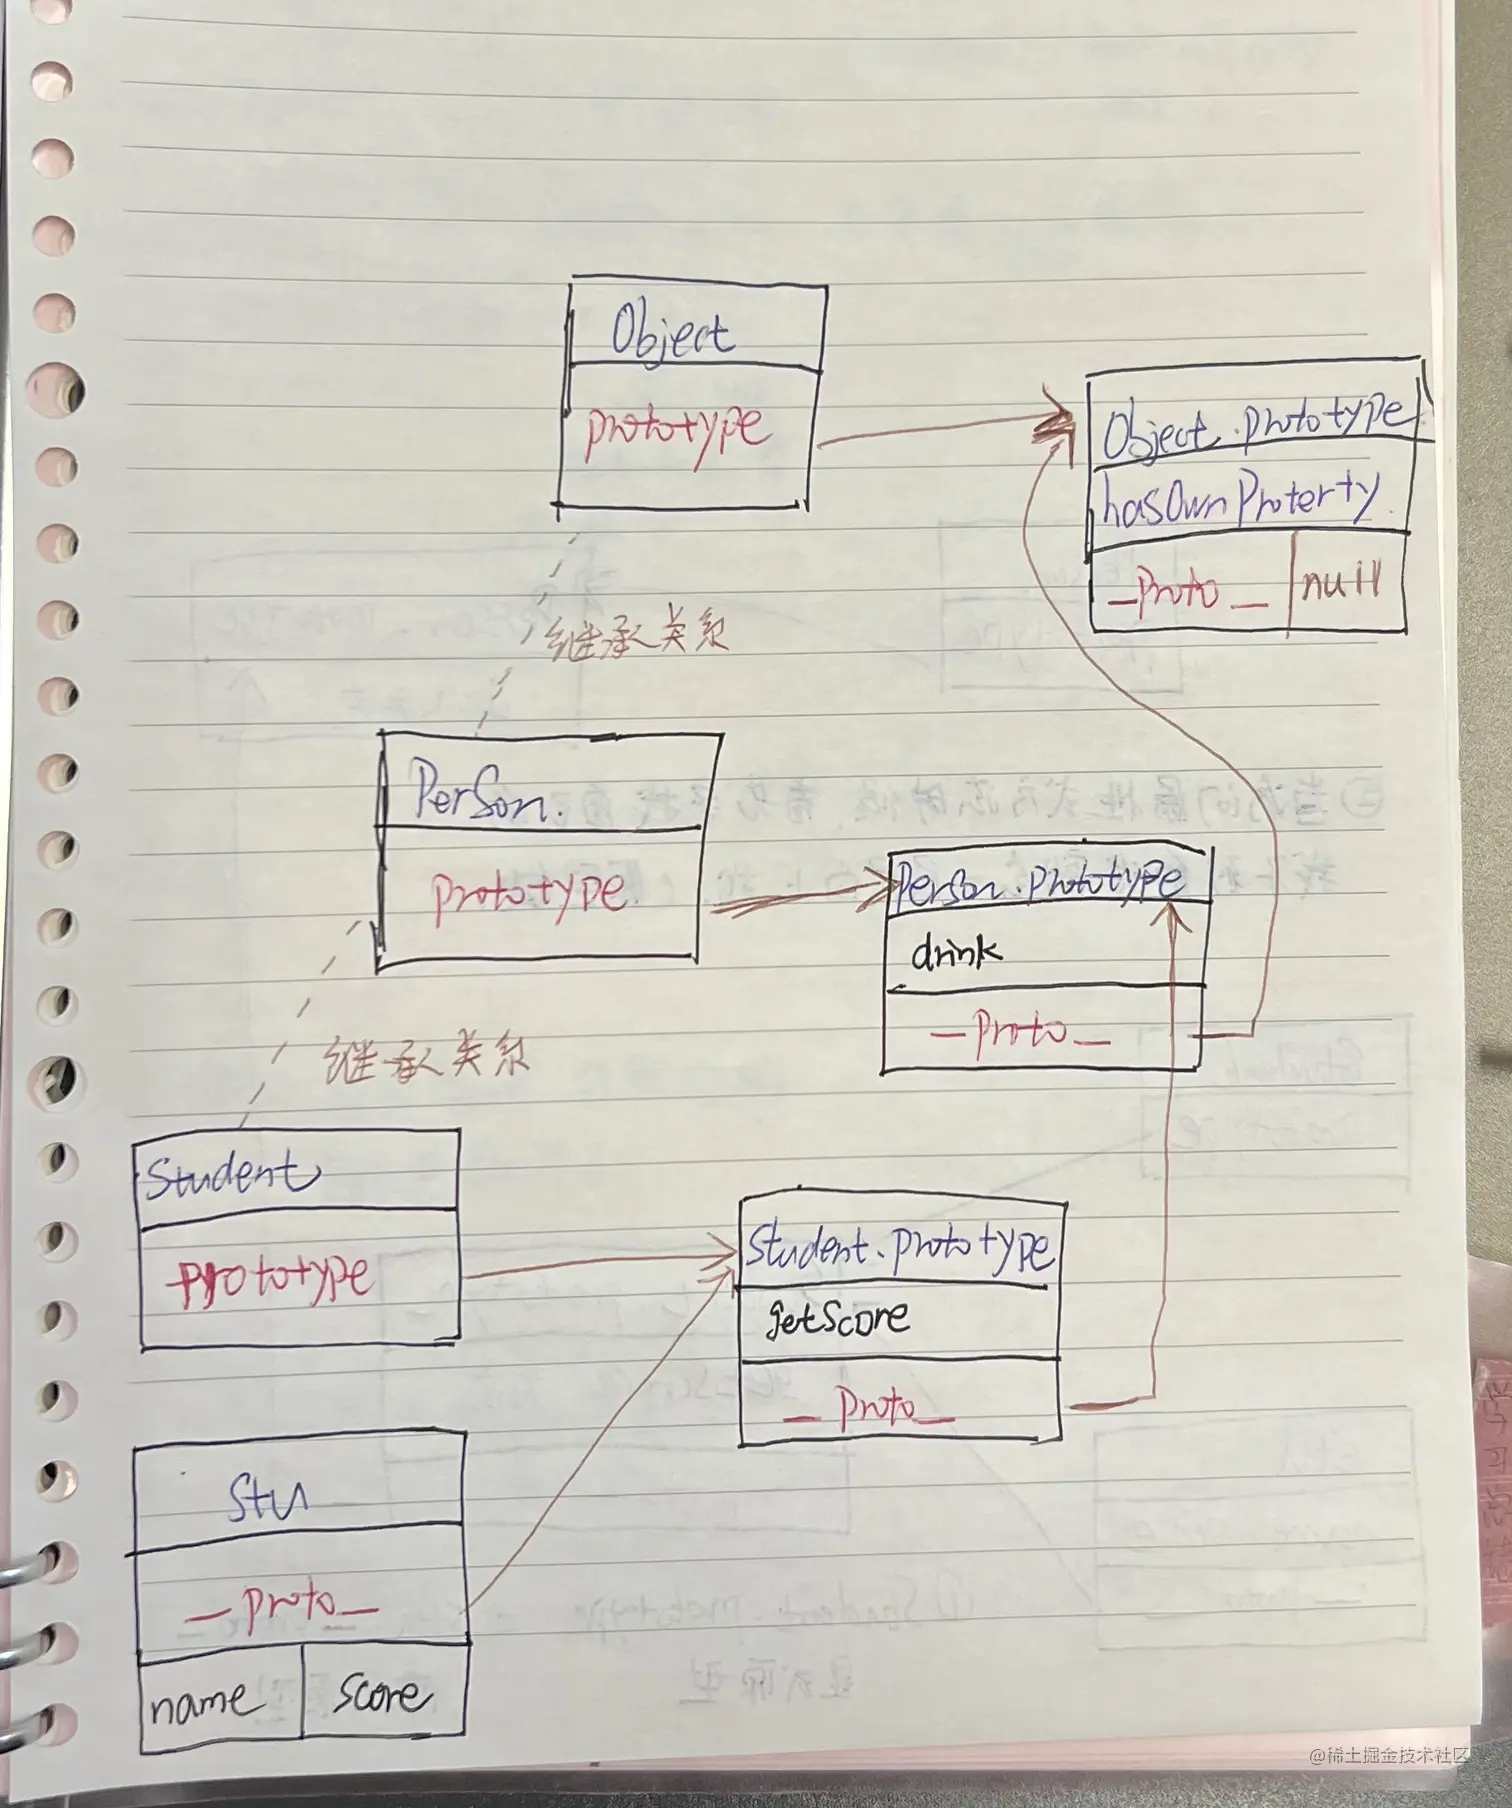 Object
prototype
Object.prototype
hasOwnProterty.
_Proto_ null
继承关系
PerSon.
prototype.
Person.prototype
drink
_Proto_
继承关系
Student
prototype
Student.prototype
getScore
_Proto_
Stu
_proto_
name score
@稀土掘金技术社区